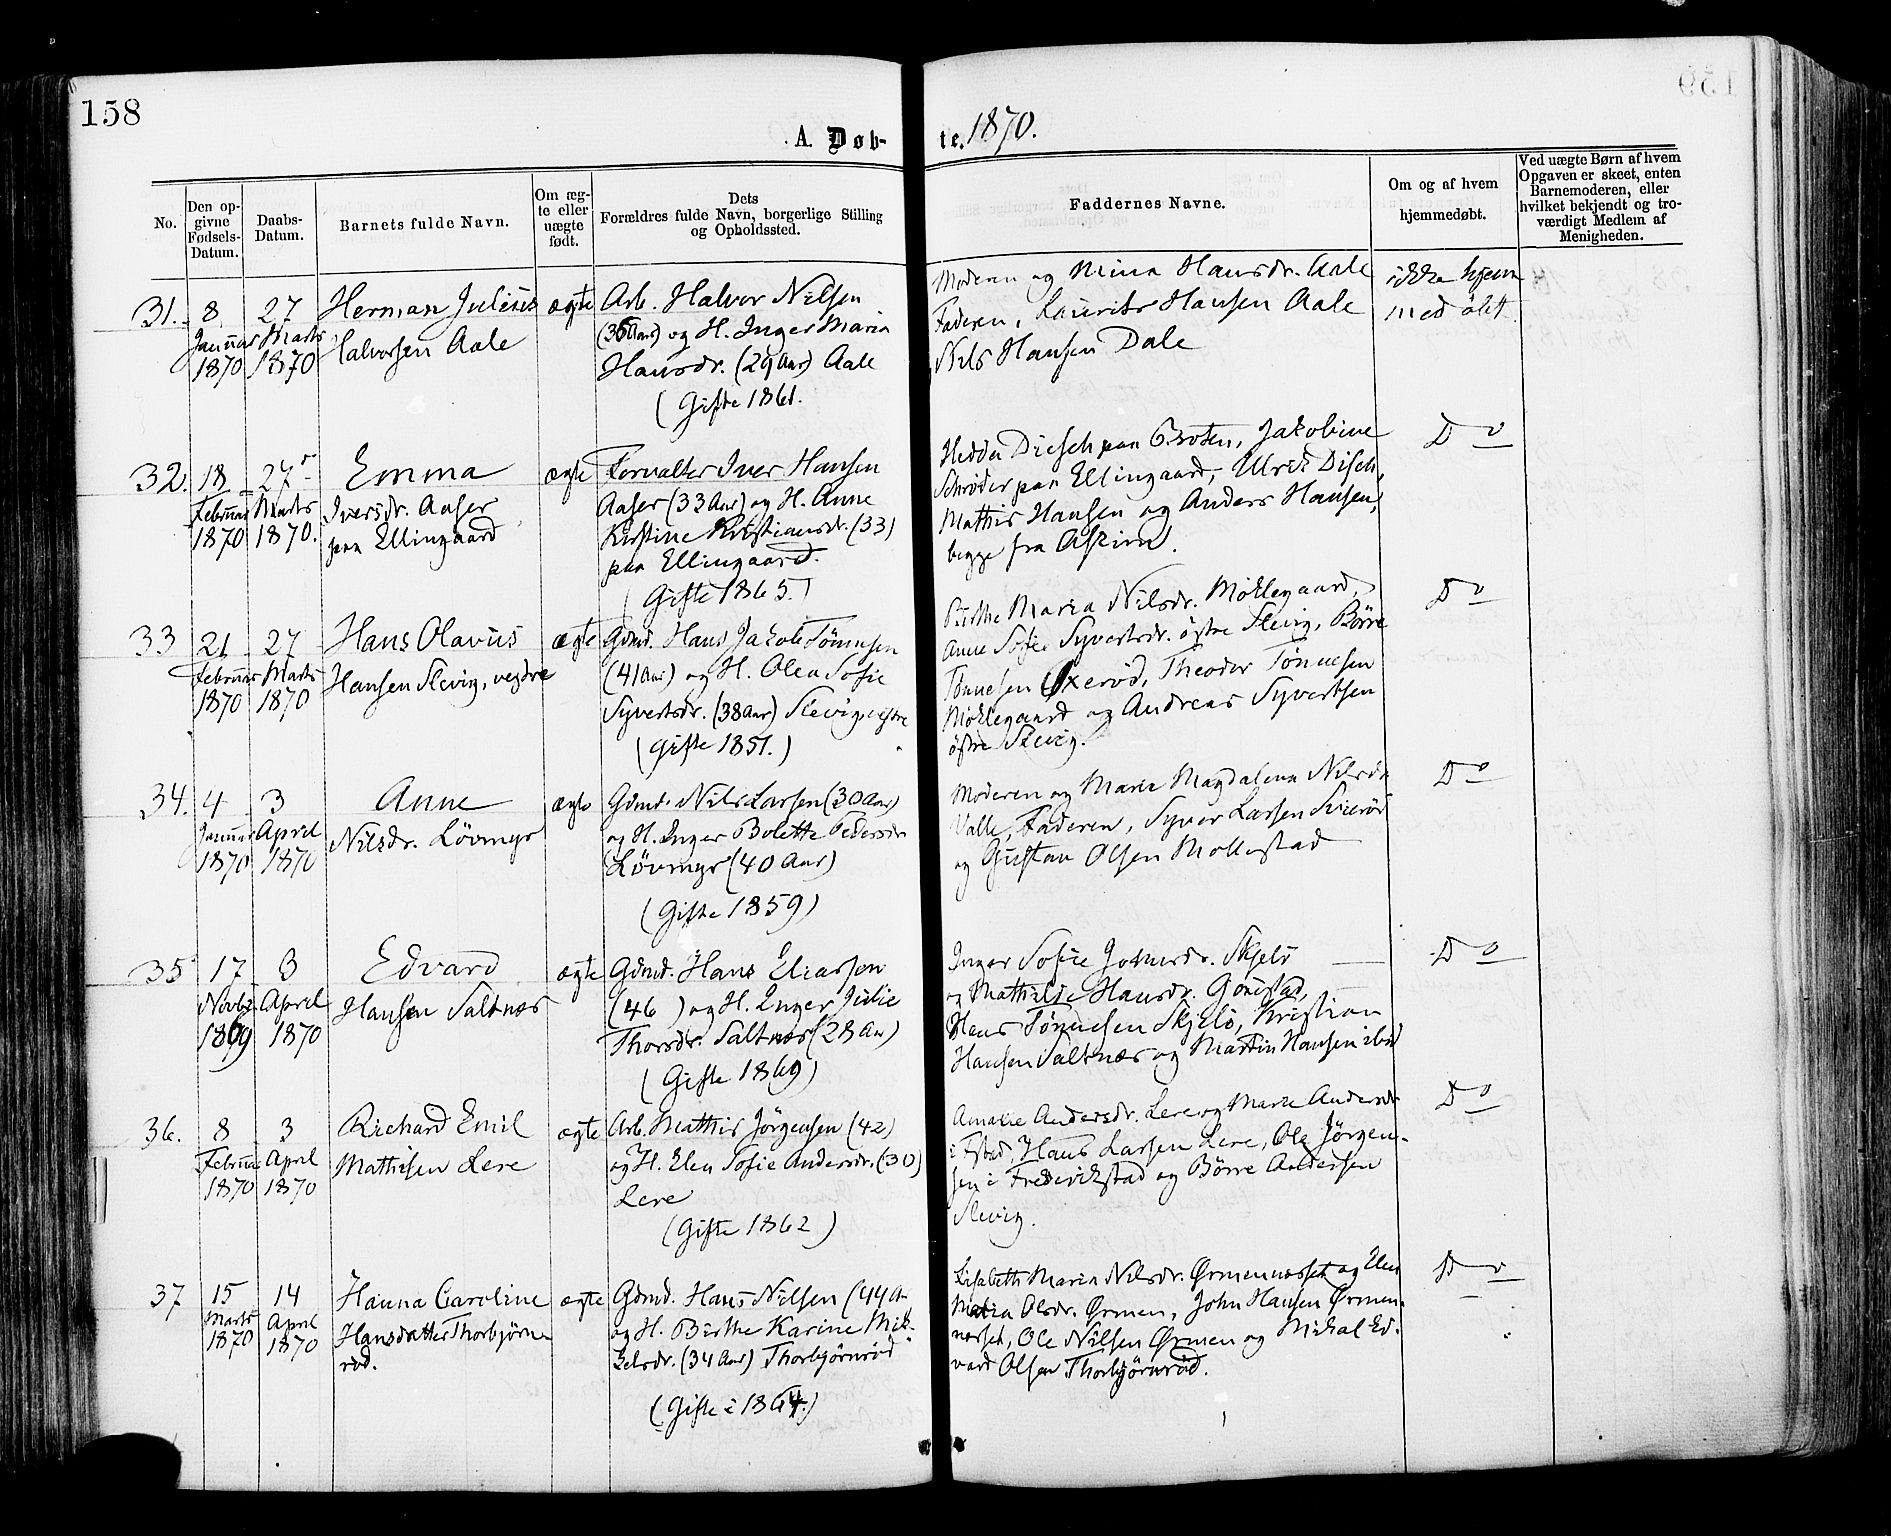 158
A. Døb-
te. 1870.
No.
Den op-
givne
Fødsels-
Datum.
Daabs-
Datum.
Barnets fulde Navn.
Om æg-
te eller
uægte
født.
Dets
Forældres fulde Navn, borgerlige Stilling
og Opholdssted.
Faddernes Navne.
Om og af hvem
hjemmedøbt.
Ved uægte Børn af hvem
Opgaven er skeet, enten
Barnemoderen, eller
hvilket bekjendt og tro-
værdigt Medlem af
Menigheden.
31.
8
Januar
1870
27
Marts
1870
Herman Julius
Halvorsen Aale
ægte
Arb. Halvor Nilsen
(35 Aar) og H. Inger Maria
Hansdr. (29 Aar) Aale
(Gifte 1861.
Moderen og Mina Hansdr. Aale
Faderen, Laurits Hansen Aale
Nils Hansen Dale
ikke hjem
med øbt.
32.
18
Februar
1870
27
Marts
1870.
Emma
Iversdr. Aaser
paa Ellingaard
ægte
Forvalter Iver Hansen
Aaser (33 Aar) og H. Anne
Kirstine Kristiansdr. (33)
paa Ellingaard.
(Gifte 1865.)
Hedda Diesch paa Broten, Jakobine
Schrøder paa Ellingaard, Ulrik Disch,
Mathis Hansen og Anders Hansen,
begge fra Askim.
Do
33
21
Februar
1870
27
Marts
1870
Hans Olavus
Hansen Slevig, vestre
ægte
Gdmd. Hans Jakob Tønnesen
(41 Aar) og H. Olea Sofie
Syvertsdr. (38 Aar) Slevig vestre
(Gifte 1851.)
Birthe Maria Nilsdr. Møklegaard,
Anne Sofie Syvertsdr. østre Slevig, Børre
Tønnesen Øxerød, Theodor Tønnesen
Møklegaard og Andreas Syvertsen
østre Slevig.
Do
34.
4
Januar
1870
3
April
1870
Anne
Nilsdr. Løvmyr
ægte
Gdmd. Nils Larsen (30 Aar)
og H. Inger Bolette Pedersdr.
Løvmyr (40 Aar)
(Gifte 1859)
Moderen og Marie Magdalena Nilsdr
Valle, Faderen, Syver Larsen
og Gustav Olsen Mollestad
Do
35
17
Novbr.
1869
3
April
1870
Edvard
Hansen Saltnæs
ægte
Gdmd. Hans Eliassen
(46 ) og H. Inger Julie
Thorsdr. Saltnæs (28 Aar)
(Gifte 1869)
Inger Sofie Skjelø
og Mathilde Hansdr.
Hans Tønnesen Skjelø, Kristian
Hansen Saltnæs og Martin Hansen ibid
Do
36.
8
Februar
1870
3
April
1870
Richard Emil
Mathisen Lere
ægte
Arb. Mathis Jørgensen (42)
og H. Elen Sofie Andersdr. (30)
Lere
(Gifte 1862)
Amalie Andersdr. Lere og Marie Andersdr
i Fstad, Hans Larsen Lere, Ole Jørgen-
sen i Frederikstad og Børre Andersen
Slevig.
Do
37
15
Marts
1870
14
April
1870
Hanna Caroline
Hansdatter Thorbjørns
rød.
ægte
Gdmd. Hans Nilsen (44 Aar
og H. Birthe Karine Mik-
kelsdr. (34 Aar) Thorbjørnrød
(Gifte i 1864.)
Lisabeth Maria Nilsdr. Ørmennesset og Elen
Maria Olsdr. Ørmen, John Hansen Ørmen-
nesset, Ole Nilsen Ørmen og Mickal Ed-
vard Olsen Thorbjørnrød.
Do